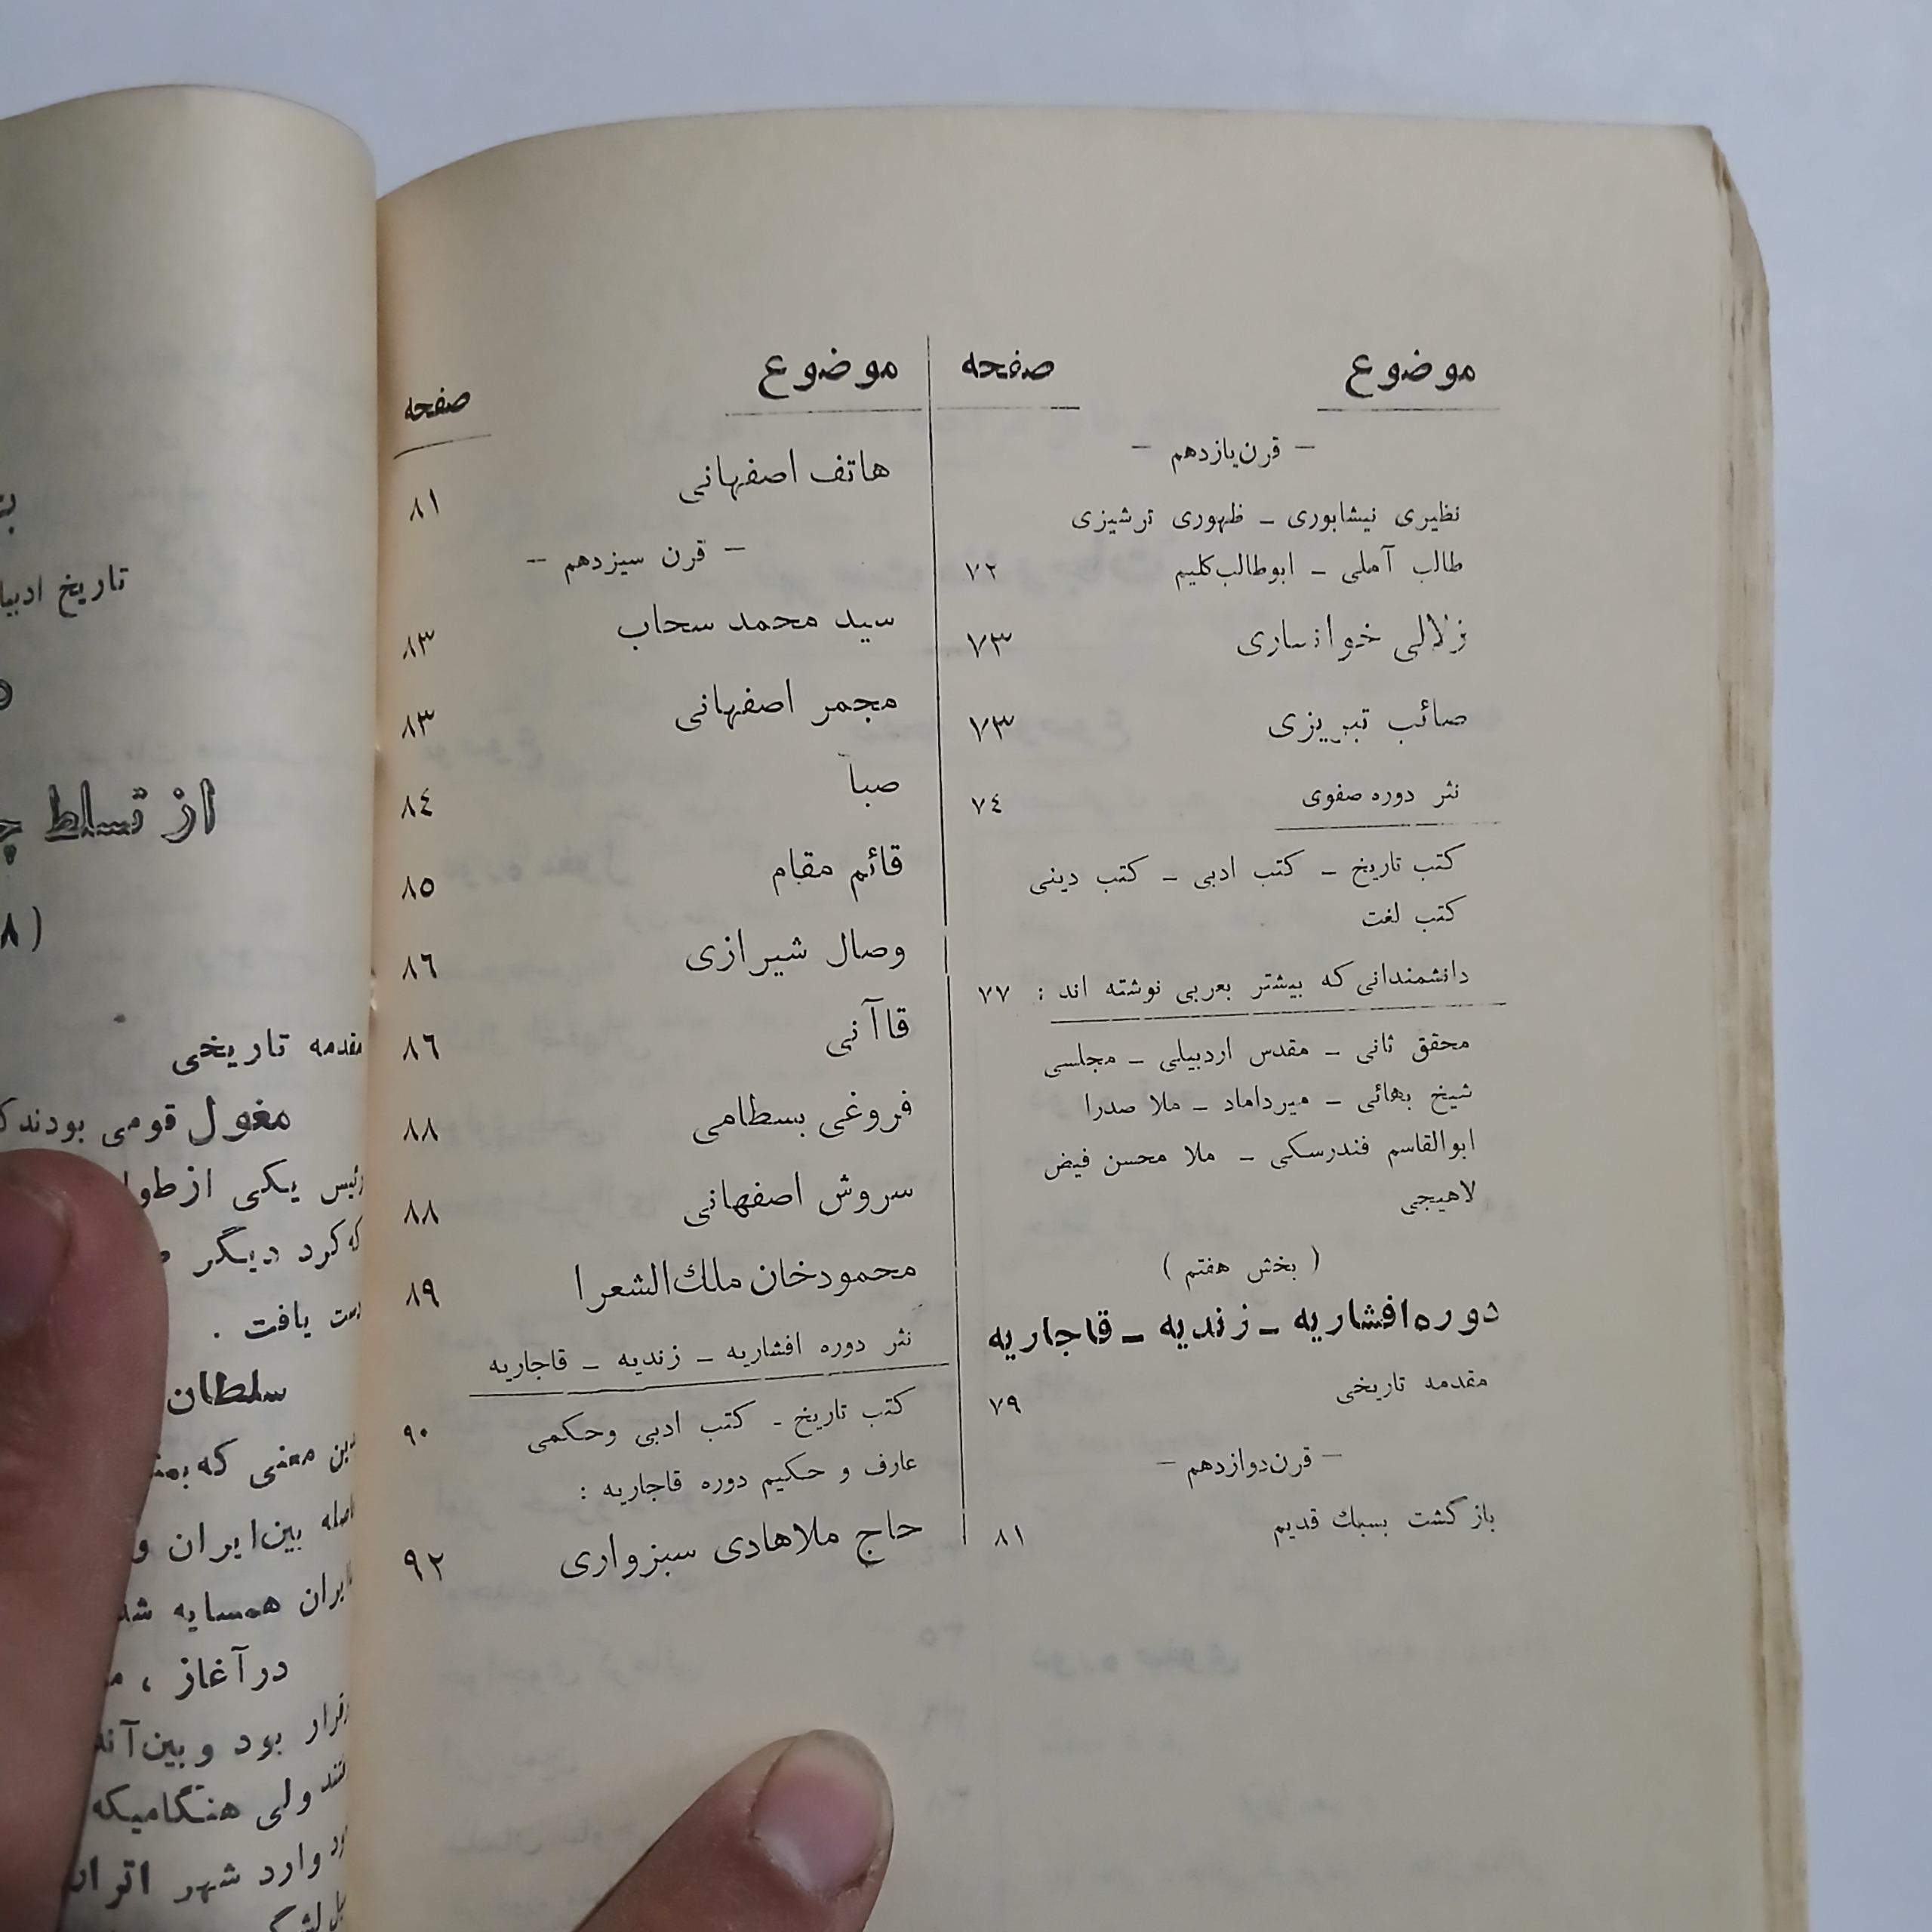 موضوع
صفحه
— قرن یازدهم —
نظیری نیشابوری ـ ظهوری ترشیزی
طالب آملی ـ ابوطالب کلیم ۷۲
زلالی خوانساری ۷۳
صائب تبریزی ۷۳
نثر دوره صفوی ۷٤
کتب تاریخ ـ کتب ادبی ـ کتب دینی
کتب لغت
دانشمندانی که بیشتر بعربی نوشته اند : ۷۷
محقق ثانی ـ مقدس اردبیلی ـ مجلسی
شیخ بهائی ـ میرداماد ـ ملا صدرا
ابوالقاسم فندرسکی ـ ملا محسن فیض
لاهیجی
( بخش هفتم )
دوره افشاریه ـ زندیه ـ قاجاریه
مقدمه تاریخی ۷۹
— قرن دوازدهم —
بازگشت بسبك قدیم ۸۱
موضوع
صفحه
هاتف اصفهانی ۸۱
— قرن سیزدهم —
سید محمد سحاب ۸۳
مجمر اصفهانی ۸۳
صبا ۸٤
قائم مقام ۸٥
وصال شیرازی ۸٦
قاآنی ۸٦
فروغی بسطامی ۸۸
سروش اصفهانی ۸۸
محمودخان ملك الشعرا ۸۹
نثر دوره افشاریه ـ زندیه ـ قاجاریه
کتب تاریخ ـ کتب ادبی وحکمی ۹۰
عارف و حکیم دوره قاجاریه :
حاج ملاهادی سبزواری ۹۲
تاریخ
از تسلط
(۸
مقدمه تاریخی
مغول قومی بودند
رئیس یکی از
که کرد دیگر
دست یافت .
سلطان
معنی که
بین ایران و
همسایه
در آغاز ،
بود و بین
ولی هنگامیکه
وارد شهر